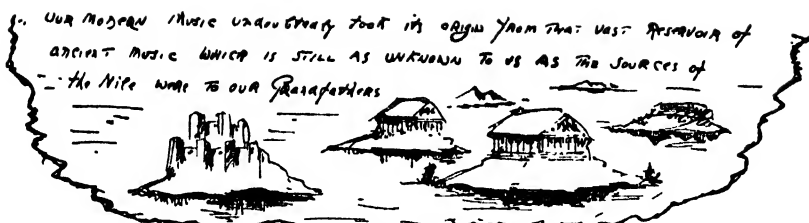 OUR MODERN MUSIC undoubtedly took its origin from THAT VAST RESERVOIR of
ancient music WHICH IS STILL AS UNKNOWN TO US AS THE SOURCES of
the Nile were TO OUR Grandfathers